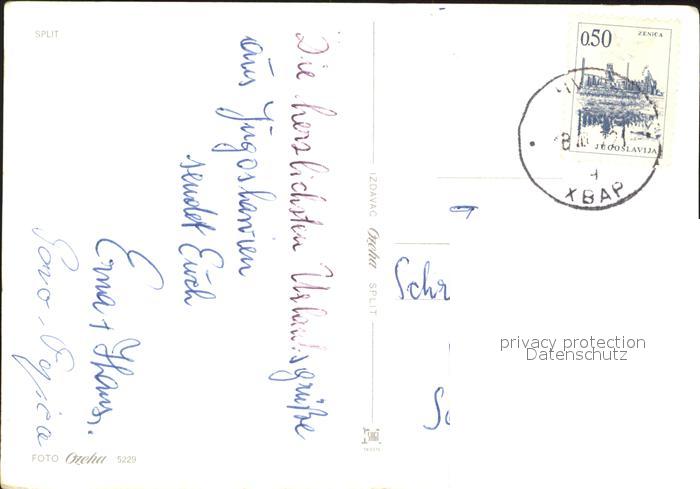 SPLIT
Die herzlichsten Urlaubsgrüße
aus Jugoslawien
sendet Euch
Erna + Hans.
FOTO Ozeha 5229
IZDAVAC Ozeha SPLIT
0.50 ZENICA
JUGOSLAVIJA
ХВАР
Schr
privacy protection
Datenschutz
Sc